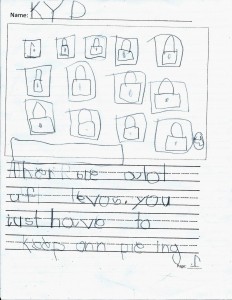 Name: KYD
ther are alot
uf leves. you
just have to
keep onn pleing
Page